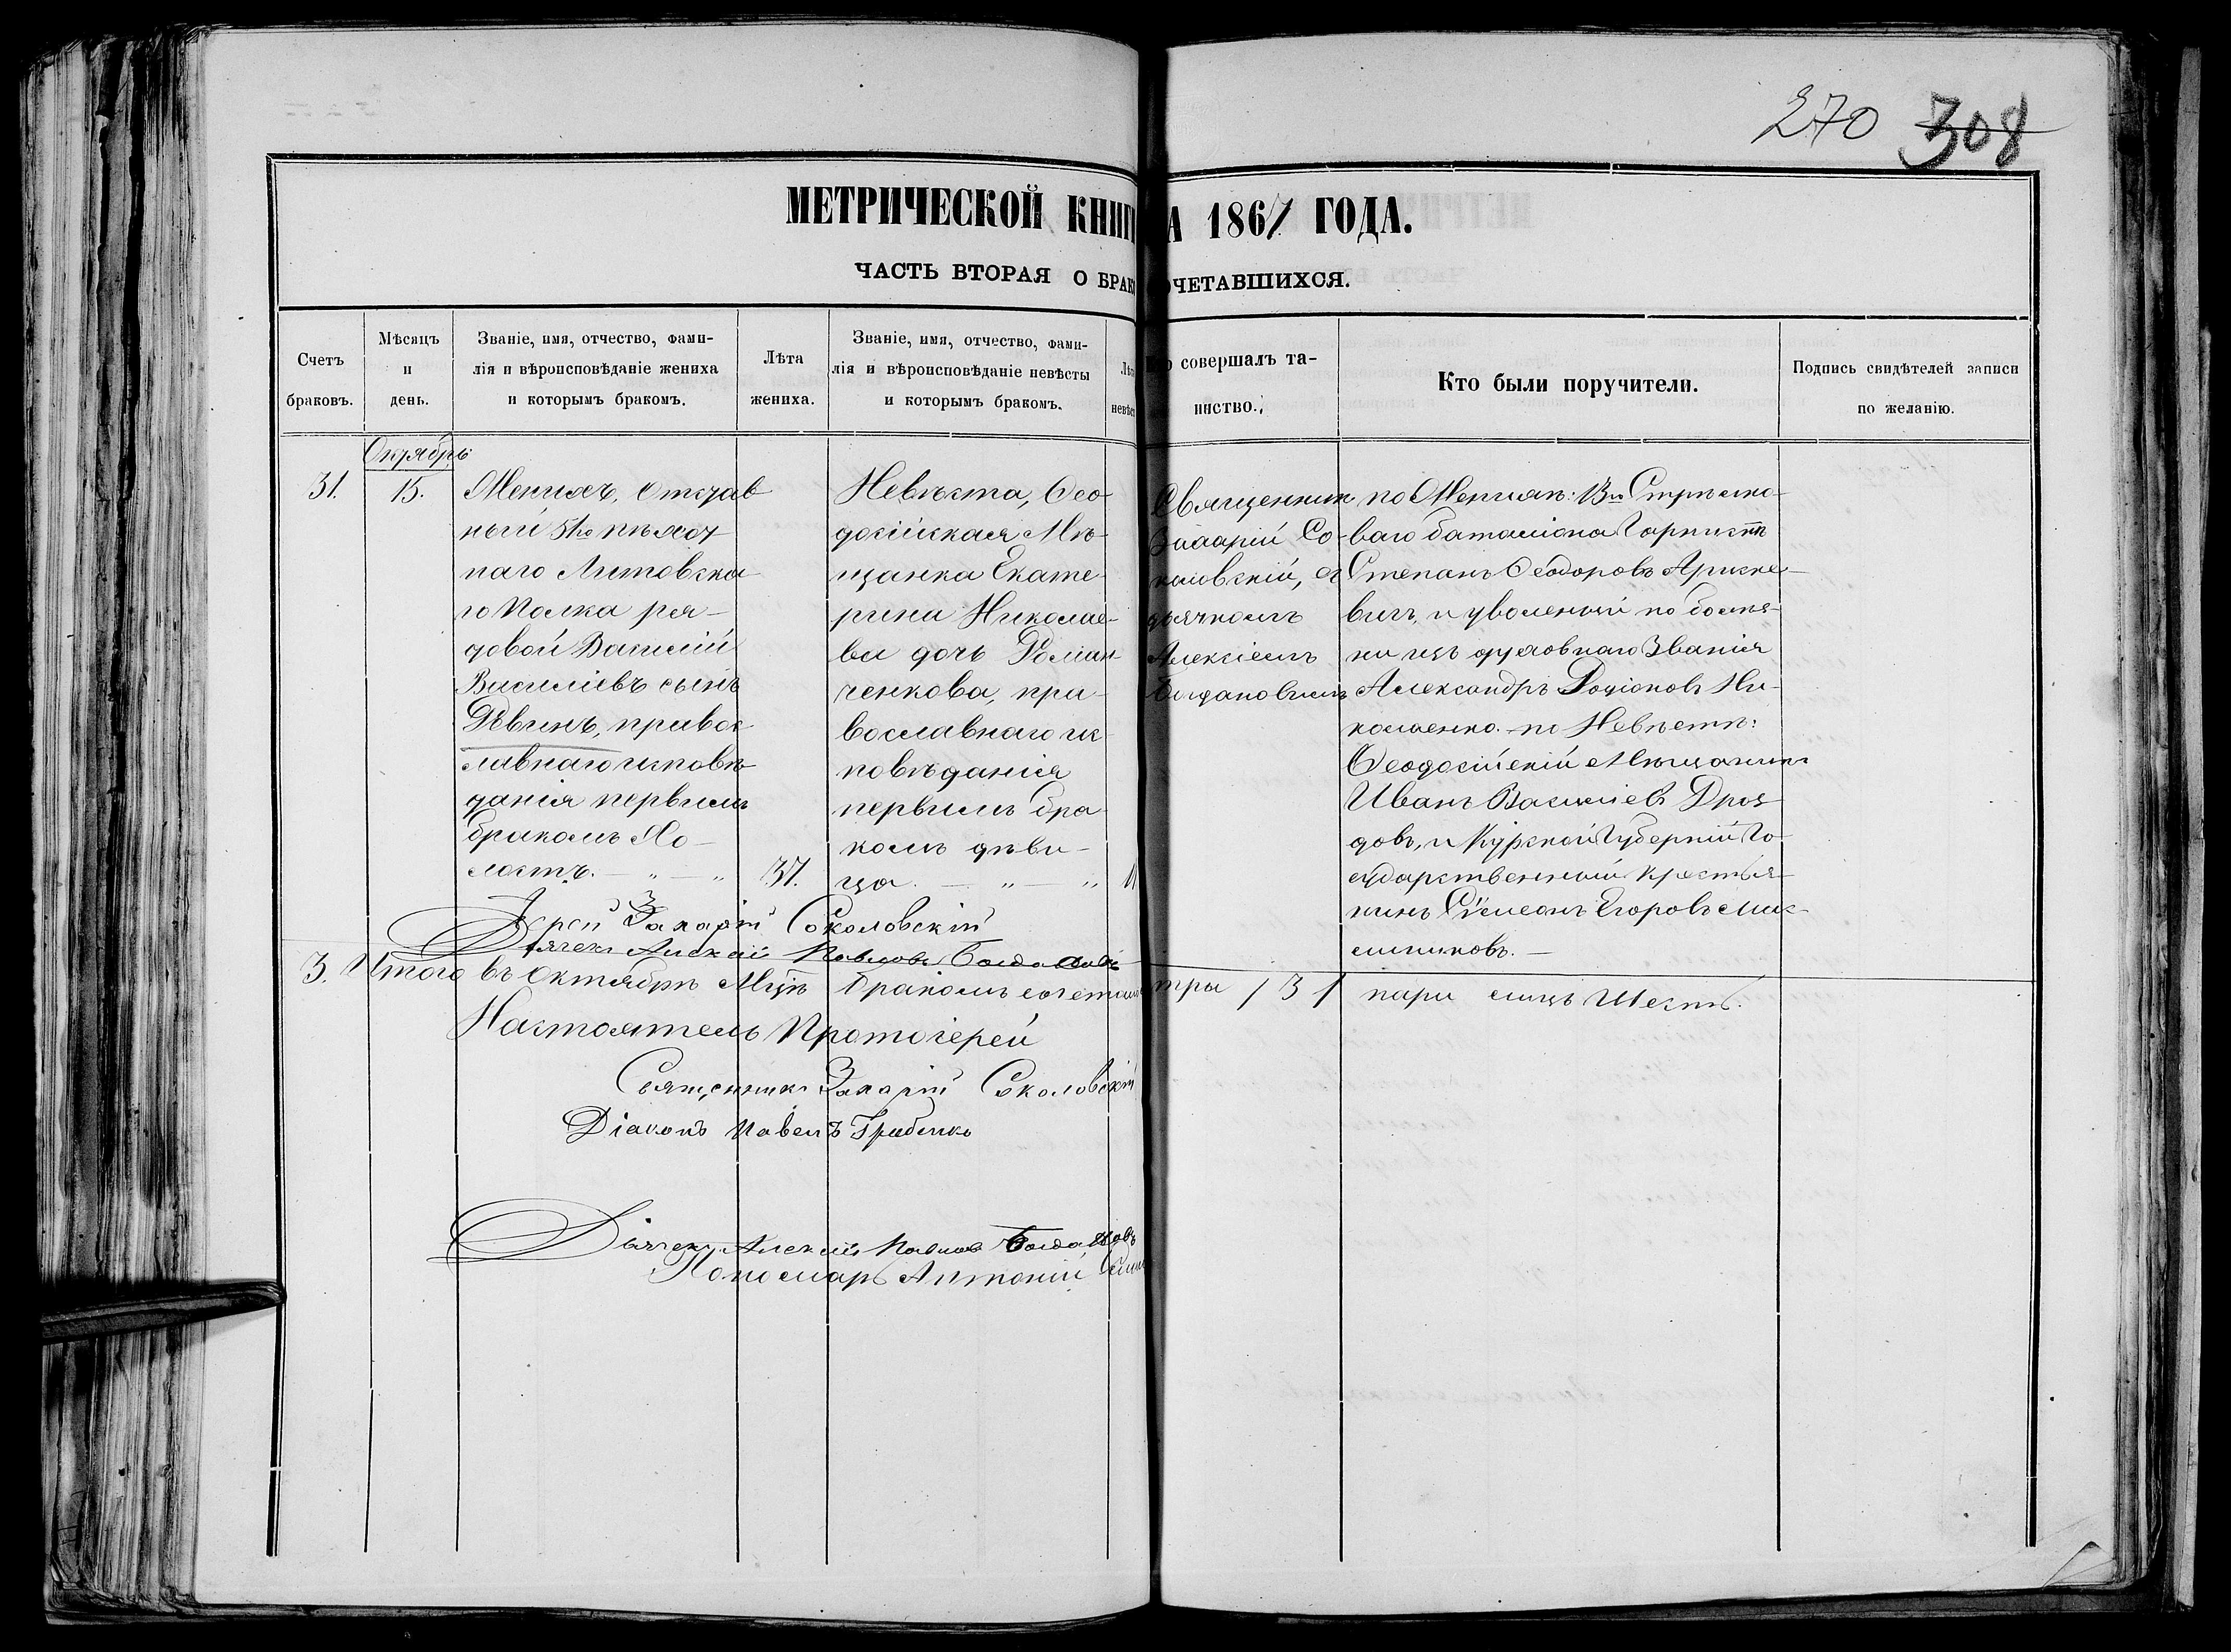 270 308
МЕТРИЧЕСКОЙ КНИГ А 1867 ГОДА.
ЧАСТЬ ВТОРАЯ О БРАКО ОЧЕТАВШИХСЯ.
Счетъ
браковъ.
Мѣсяцъ
и
день.
Званіе, имя, отчество, фами-
лія и вѣроисповѣданіе жениха
и которымъ бракомъ.
Лѣта
жениха.
Званіе, имя, отчество, фами-
лія и вѣроисповѣданіе невѣсты
и которымъ бракомъ.
Лѣт
невѣст
о совершалъ та-
инство.
Кто были поручители.
Подпись свидѣтелей записи
по желанію.
Октябрь
31.
15.
Женихъ, отстав
ный 51го пѣхот
наго Литовска
го Полка ря-
довой Василій
Василіевъ сынъ
Дѣвинъ, правос
лавнаго исповѣ
данія первымъ
бракомъ Хо-
лостъ. — „ — „
37.
Невѣста, Ѳео-
досійская Мѣ-
щанка Екате-
рина Николае-
ва дочь Роман
ченкова, пра-
вославнаго ис
повѣданія
первымъ бра
комъ дѣви-
ца. — „ — „
Священник
Захарій Со-
коловскій, съ
дьячкомъ
Алексіемъ
Богдановымъ
по Женихѣ: 13го Стрѣлко-
ваго баталіона Горнистъ
Степанъ Ѳеодоровъ
вичъ, и уволеный по болѣз-
ни изъ духовнаго Званія
Александръ Родіоновъ Ни-
коленко. по Невѣстѣ:
Ѳеодосійскій Мѣщанинъ
Иванъ Василіевъ Дроз
довъ, и Курской Губерніи Го-
сударственный Крестья-
нинъ Сѵмеонъ Егоровъ
Іерей Захарій Соколовскій
Дьячекъ Алексій Павловъ Богдановъ
3. Итого въ Октябрѣ М‑цѣ бракомъ сочетал три /3/ пары лицъ Шесть.
Настоятель Протоіерей
Священникъ Захарій Соколовскій
Діаконъ Павелъ Грибенко
Дьячекъ Алексій Павловъ Богдановъ
Пономарь Антоній